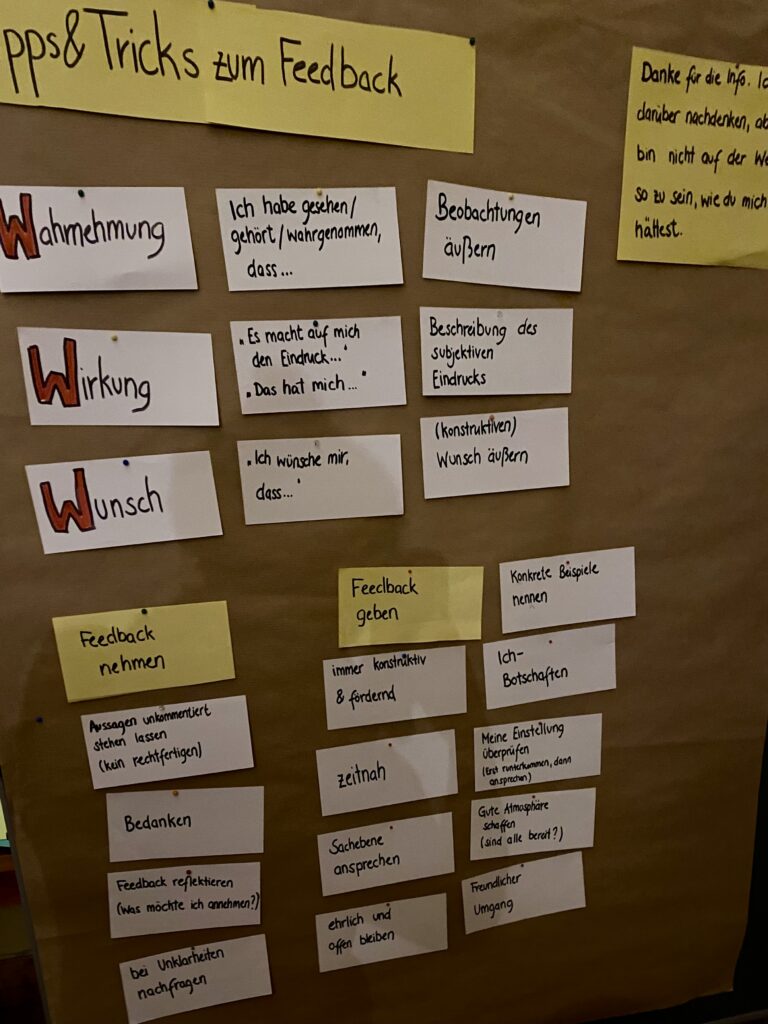 pps& Tricks zum Feedback
Danke für die Info. Ic
darüber nachdenken, ab
bin nicht auf der We
so zu sein, wie du mich
hättest.
Wahrnehmung
Ich habe gesehen/
gehört/wahrgenommen,
dass...
Beobachtungen
äußern
Wirkung
„Es macht auf mich
den Eindruck..."
„Das hat mich..."
Beschreibung des
subjektiven
Eindrucks
Wunsch
„Ich wünsche mir,
dass..."
(konstruktiven)
Wunsch äußern
Feedback
nehmen
Aussagen unkommentiert
stehen lassen
(kein rechtfertigen)
Bedanken
Feedback reflektieren
(Was möchte ich annehmen?)
bei Unklarheiten
nachfragen
Feedback
geben
immer konstruktiv
& fördernd
zeitnah
Sachebene
ansprechen
ehrlich und
offen bleiben
Konkrete Beispiele
nennen
Ich-
Botschaften
Meine Einstellung
überprüfen
(Erst runterkommen, dann
ansprechen)
Gute Atmosphäre
schaffen
(sind alle bereit?)
Freundlicher
Umgang